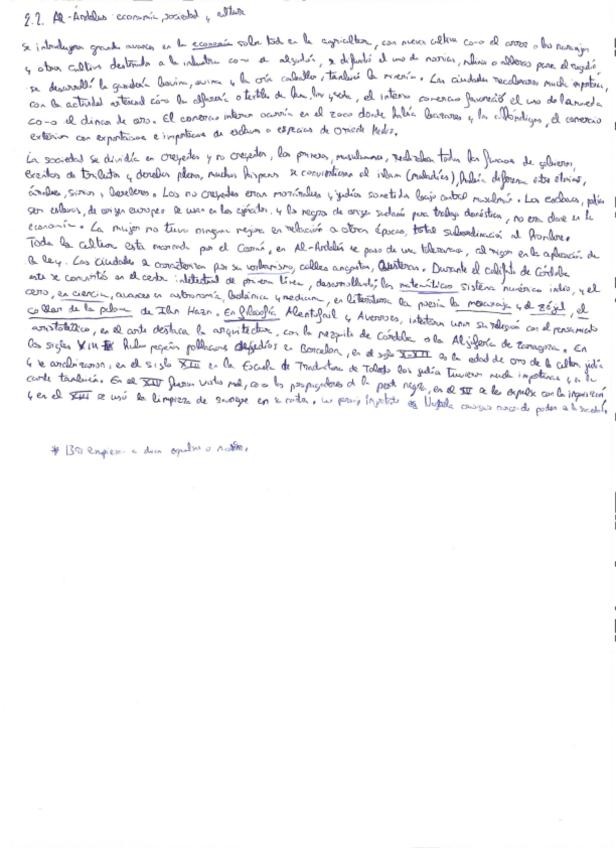 2.2. Al-Ándalus: economía, sociedad y cultura
Se introdujeron grandes avances en la economía sobre todo en la agricultura, con nuevos cultivos como el arroz o las naranjas
y otros cultivos destinados a la industria como el algodón, se difundió el uso de norias, molinos o para el regadío
se desarrolló la ganadería bovina, ovina y la cría caballar, también la minería. Las ciudades recobraron mucha importancia,
con la actividad artesanal como la alfarería o textiles de lino, lana y seda, el intenso comercio favoreció el uso de la moneda
como el dinar de oro. El comercio interior ocurría en el zoco donde había bazares y las alhóndigas, el comercio
exterior con exportaciones e importaciones de esclavos o especias de Oriente Medio.
La sociedad se dividía en creyentes y no creyentes, los primeros, musulmanes, realizaban todas las funciones de gobierno,
exentos de tributos y derechos plenos, muchos hispanos se convirtieron al islam (muladíes), había diferencias entre etnias,
árabes, sirios, bereberes. Los no creyentes eran mozárabes y judíos sometidos bajo control musulmán. Los esclavos, podían
ser eslavos, de origen europeo se usan en los ejércitos, y los negros de origen sudanés para trabajo doméstico, no era clave en la
economía. La mujer no tuvo ninguna mejora en relación a otras épocas, total subordinación al hombre.
Toda la cultura está marcada por el Corán, en Al-Ándalus se pasó de una tolerancia, al rigor en la aplicación de
la ley. Las ciudades se caracterizan por su urbanismo, calles angostas, Durante el califato de Córdoba
este se convirtió en el centro intelectual de primera línea, desarrollando las matemáticas sistema numérico indio, y el
cero, en ciencia, avances en astronomía botánica y medicina, en literatura la poesía la moaxaja y el zéjel, el
collar de la paloma de Ibn Hazn. En filosofía Abentofail y Averroes, intentaron unir su religión con el pensamiento
aristotélico, en el arte destaca la arquitectura, con la mezquita de Córdoba o la Aljafería de Zaragoza. En
los siglos VIII-IX hubo pequeñas poblaciones de judíos en Barcelona, en el siglo X-XII es la edad de oro de la cultura judía
y se arabizaron, en el siglo XIII en la Escuela de Traductores de Toledo los judíos tuvieron mucha importancia y en la
corte también. En el XIV fueron vistos mal, como los propagadores de la peste negra, en el XV se les expulsa con la inquisición
y en el XVI se usó la limpieza de sangre en su contra.